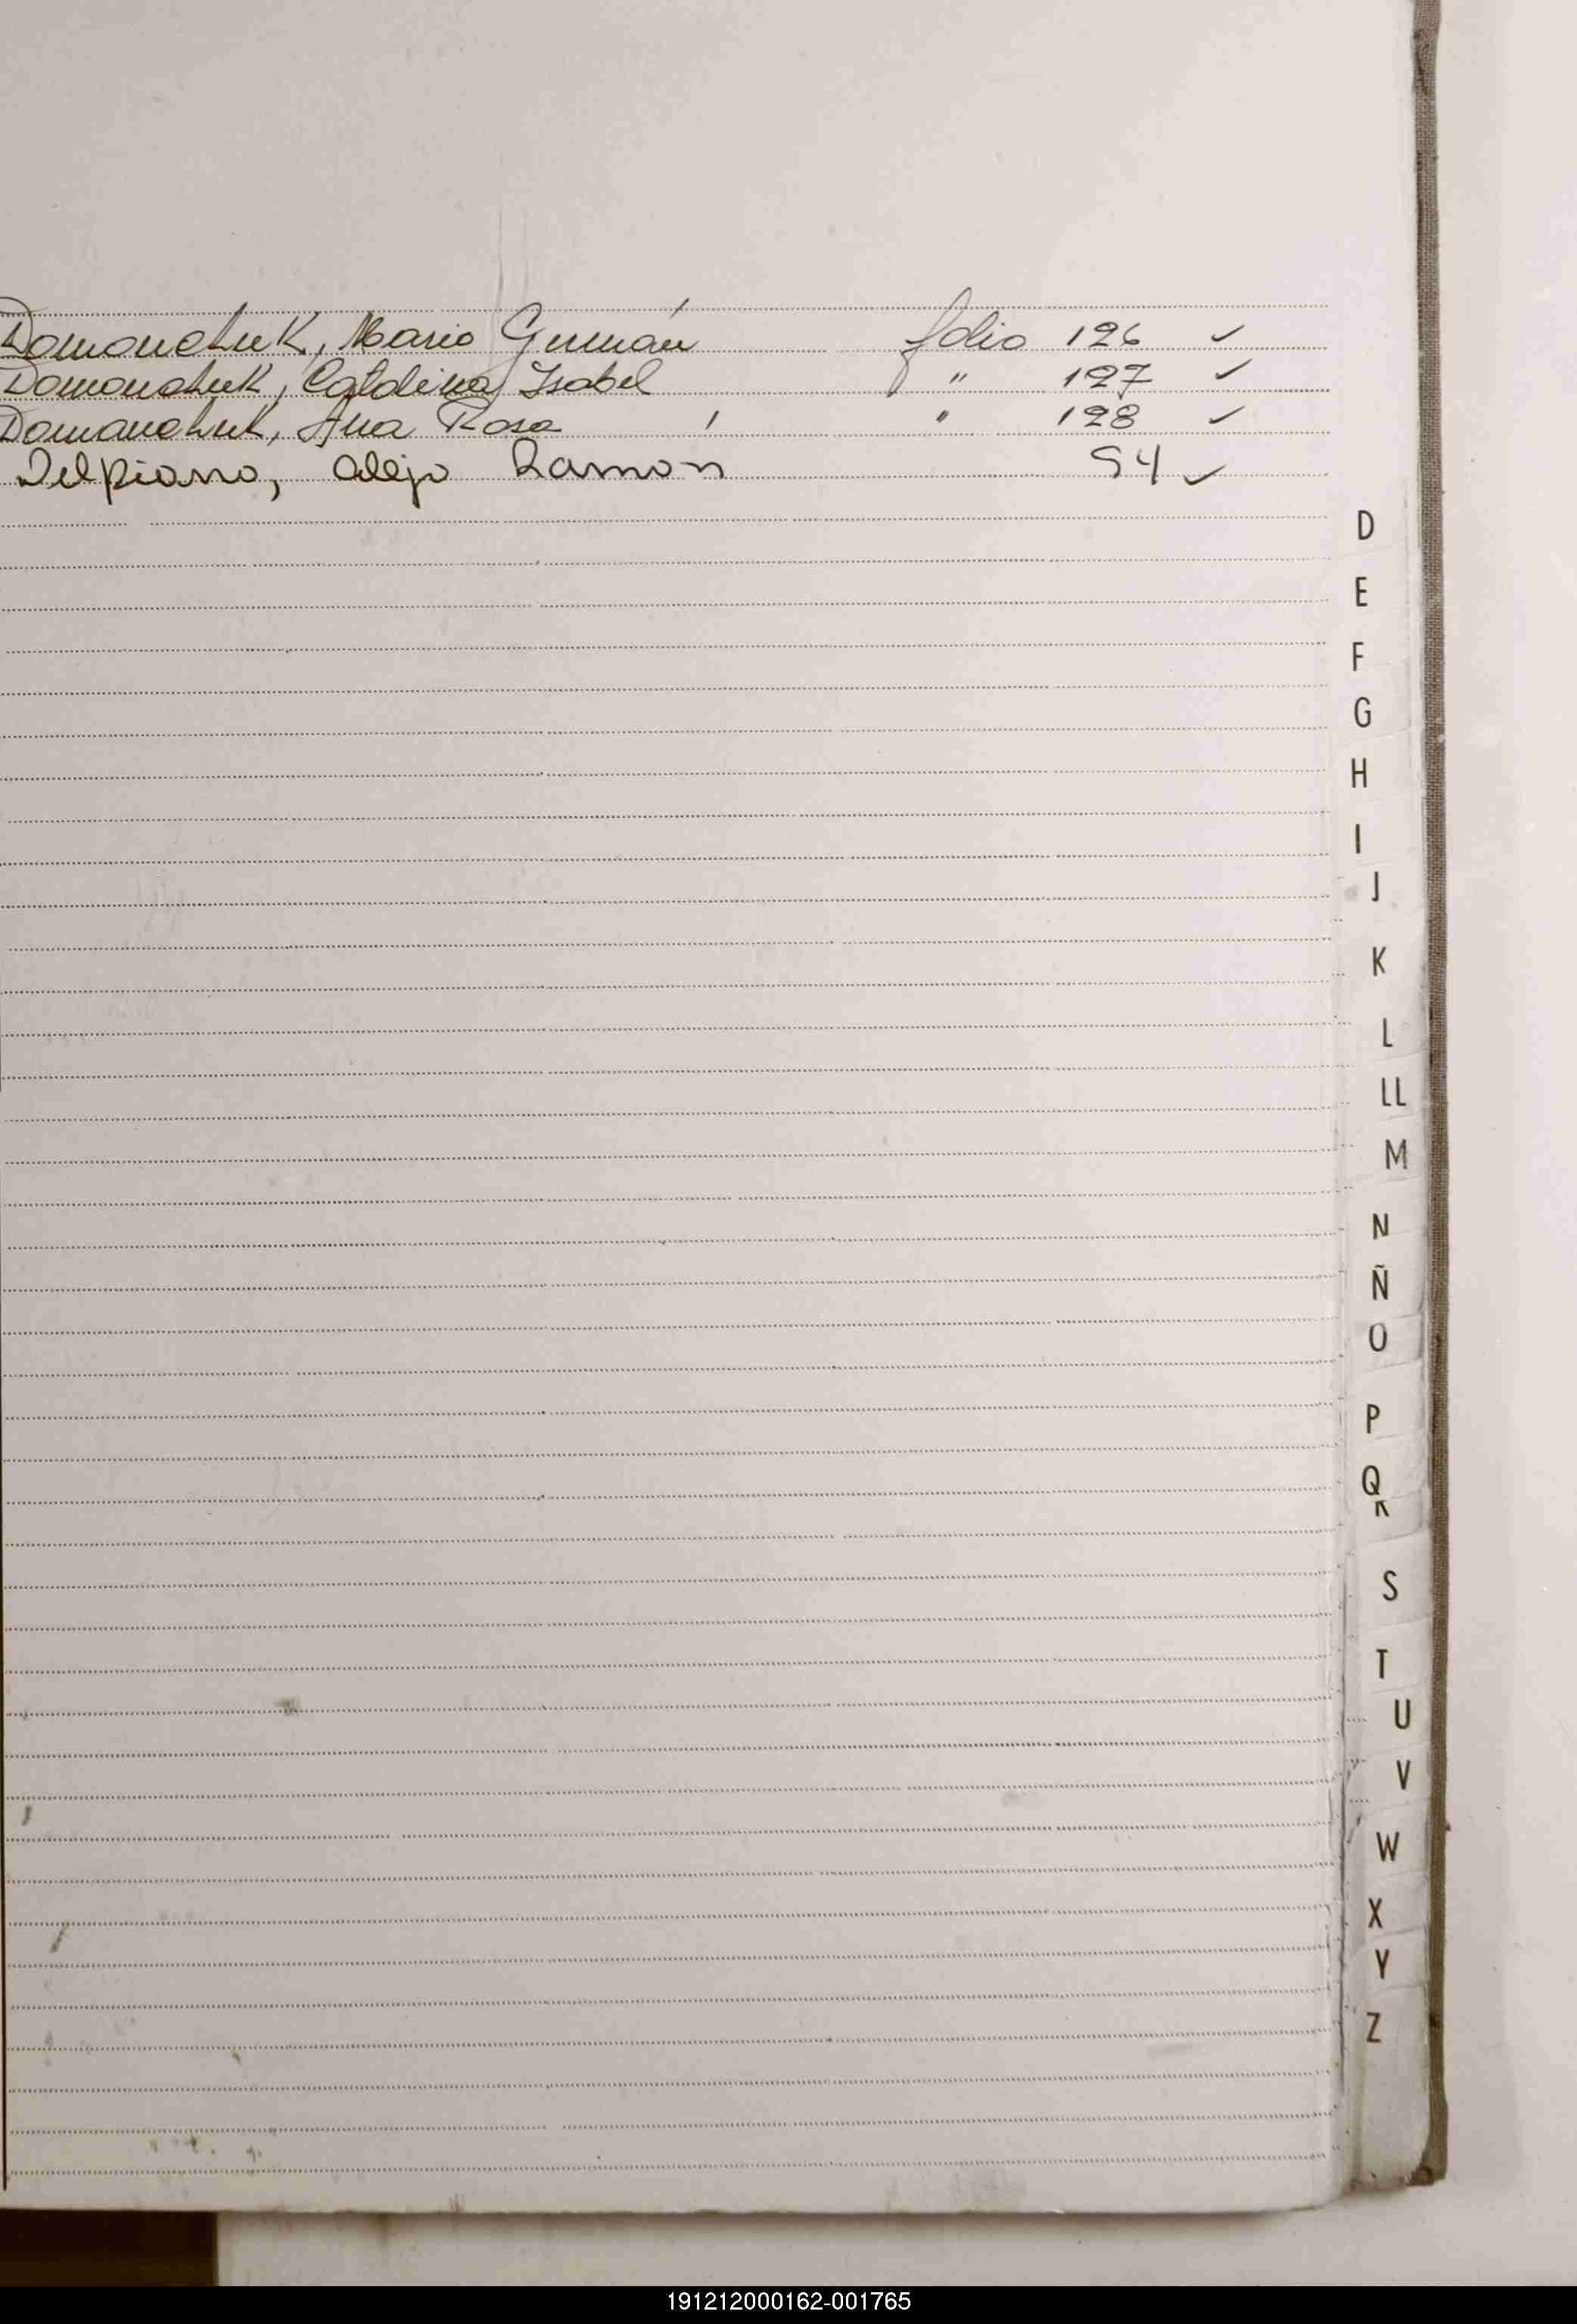 Domonchuk, Mario Germán folio 126 ✓
Domonchuk, Catalina Isabel " 127 ✓
Domanchuk, Ana Rosa " 128 ✓
Delpiano, Alejo Ramon 54 ✓
D
E
F
G
H
I
J
K
L
LL
M
N
Ñ
O
P
Q
R
S
T
U
V
W
X
Y
Z
191212000162-001765